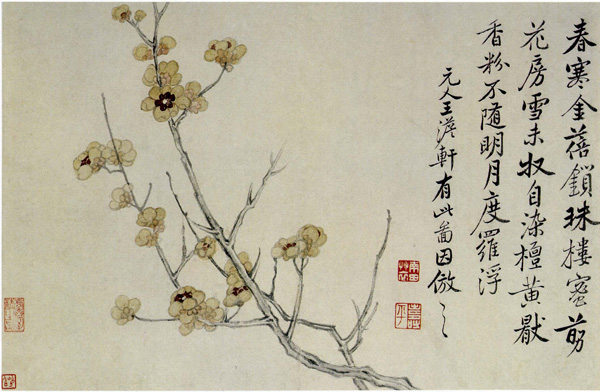 春寒金蓓鎖珠樓蜜剪
花房雪未收自染檀黃厭
香粉不隨明月度羅浮
元人王澹軒有此啚因倣之